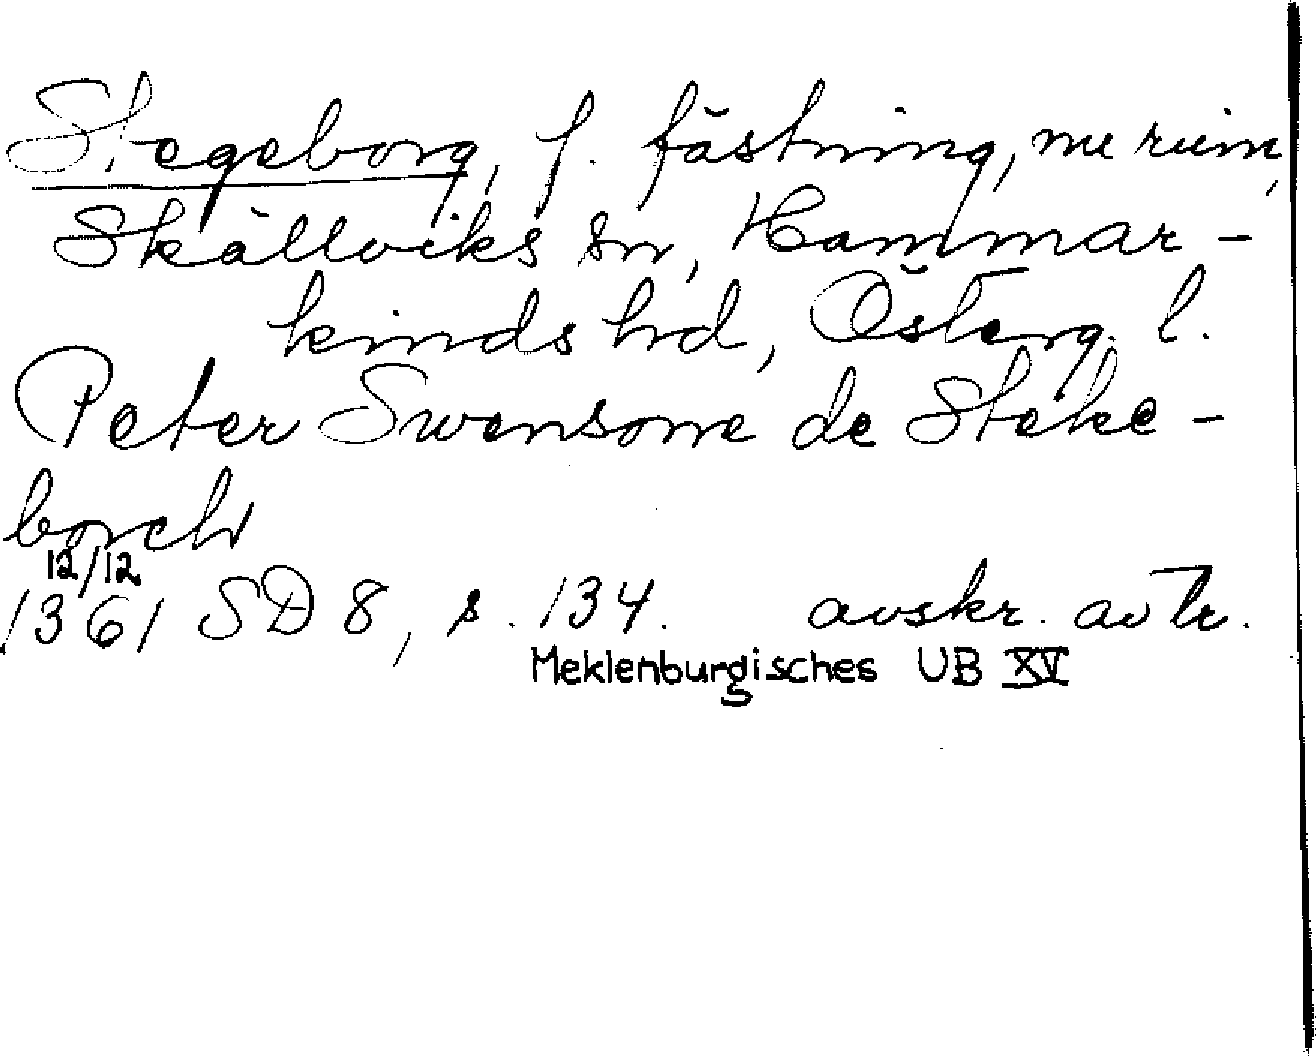 Stegeborg, f. fästning, nu ruin,
Skällviks sn, Hammar-
kinds hd, Österg. l.
Peter Swensone de Steke-
borch
12/12
1361 SD 8, s. 134. avskr. av tr.
Meklenburgisches UB XV